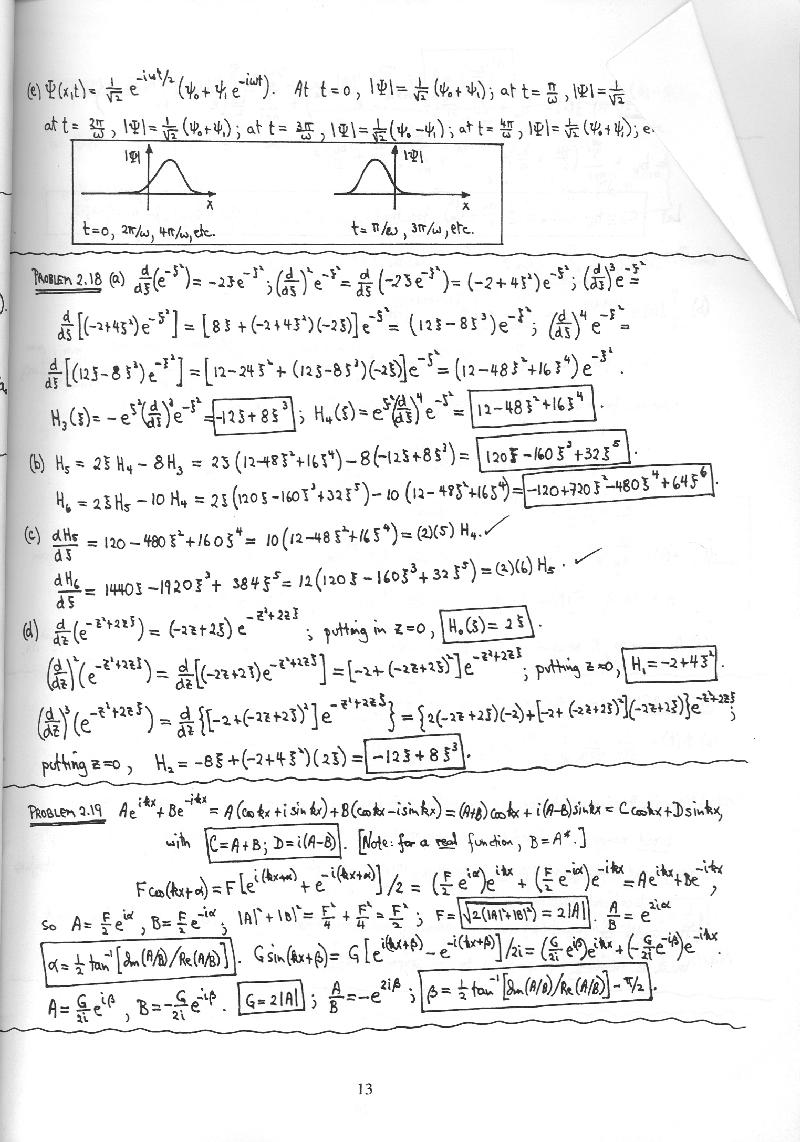 (e) Ψ(x,t) = 1/√2 e^{-iωt/2} (ψ₀ + ψ₁ e^{-iωt}). At t=0, |Ψ| = 1/√2 (ψ₀+ψ₁); at t = π/ω, |Ψ| = 1/√2
at t = 2π/ω, |Ψ| = 1/√2 (ψ₀+ψ₁); at t = 3π/ω, |Ψ| = 1/√2 (ψ₀-ψ₁); at t = 4π/ω, |Ψ| = 1/√2 (ψ₀+ψ₁); e
|Ψ| |Ψ|
x x
t=0, 2π/ω, 4π/ω, etc. t = π/ω, 3π/ω, etc.
PROBLEM 2.18 (a) d/dξ (e^{-ξ²}) = -2ξe^{-ξ²}; (d/dξ)² e^{-ξ²} = d/dξ (-2ξe^{-ξ²}) = (-2+4ξ²)e^{-ξ²}; (d/dξ)³ e^{-ξ²} =
d/dξ [(-2+4ξ²)e^{-ξ²}] = [8ξ + (-2+4ξ²)(-2ξ)] e^{-ξ²} = (12ξ-8ξ³)e^{-ξ²}; (d/dξ)⁴ e^{-ξ²} =
d/dξ [(12ξ-8ξ³)e^{-ξ²}] = [12-24ξ² + (12ξ-8ξ³)(-2ξ)] e^{-ξ²} = (12-48ξ²+16ξ⁴) e^{-ξ²}.
H₃(ξ) = -e^{ξ²} (d/dξ)³ e^{-ξ²} = -12ξ+8ξ³; H₄(ξ) = e^{ξ²} (d/dξ)⁴ e^{-ξ²} = 12-48ξ²+16ξ⁴.
(b) H₅ = 2ξH₄ - 8H₃ = 2ξ(12-48ξ²+16ξ⁴) - 8(-12ξ+8ξ³) = 120ξ-160ξ³+32ξ⁵.
H₆ = 2ξH₅ - 10H₄ = 2ξ(120ξ-160ξ³+32ξ⁵) - 10(12-48ξ²+16ξ⁴) = -120+720ξ²-480ξ⁴+64ξ⁶.
(c) dH₅/dξ = 120-480ξ²+160ξ⁴ = 10(12-48ξ²+16ξ⁴) = (2)(5)H₄. ✓
dH₆/dξ = 1440ξ-1920ξ³+384ξ⁵ = 12(120ξ-160ξ³+32ξ⁵) = (2)(6)H₅. ✓
(d) d/dz (e^{-z²+2zξ}) = (-2z+2ξ) e^{-z²+2zξ}; putting in z=0, H₀(ξ) = 2ξ.
(d/dz)² (e^{-z²+2zξ}) = d/dz [(-2z+2ξ)e^{-z²+2zξ}] = [-2+(-2z+2ξ)²] e^{-z²+2zξ}; putting z=0, H₁ = -2+4ξ².
(d/dz)³ (e^{-z²+2zξ}) = d/dz {[-2+(-2z+2ξ)²] e^{-z²+2zξ}} = {2(-2z+2ξ)(-2)+[-2+(-2z+2ξ)²](-2z+2ξ)} e^{-z²+2zξ};
putting z=0, H₂ = -8ξ+(-2+4ξ²)(2ξ) = -12ξ+8ξ³.
PROBLEM 2.19 Ae^{ikx}+Be^{-ikx} = A(cos kx + i sin kx)+B(cos kx - i sin kx) = (A+B) cos kx + i(A-B) sin kx = C cos kx + D sin kx,
with C=A+B; D=i(A-B). [Note: for a real function, B=A*.]
F cos(kx+α) = F[e^{i(kx+α)} + e^{-i(kx+α)}]/2 = (F/2 e^{iα})e^{ikx} + (F/2 e^{-iα})e^{-ikx} = Ae^{ikx}+Be^{-ikx},
so A = F/2 e^{iα}, B = F/2 e^{-iα}; |A|²+|B|² = F²/4 + F²/4 = F²/2; F = √2(|A|²+|B|²) = 2|A|. A/B = e^{2iα}
α = ½ tan⁻¹[Im(A/B)/Re(A/B)]. G sin(kx+β) = G[e^{i(kx+β)} - e^{-i(kx+β)}]/2i = (G/2i e^{iβ})e^{ikx} + (-G/2i e^{-iβ})e^{-ikx}.
A = G/2i e^{iβ}, B = -G/2i e^{-iβ}. G=2|A|; A/B = -e^{2iβ}; β = ½ tan⁻¹[Im(A/B)/Re(A/B)] - π/2.
13